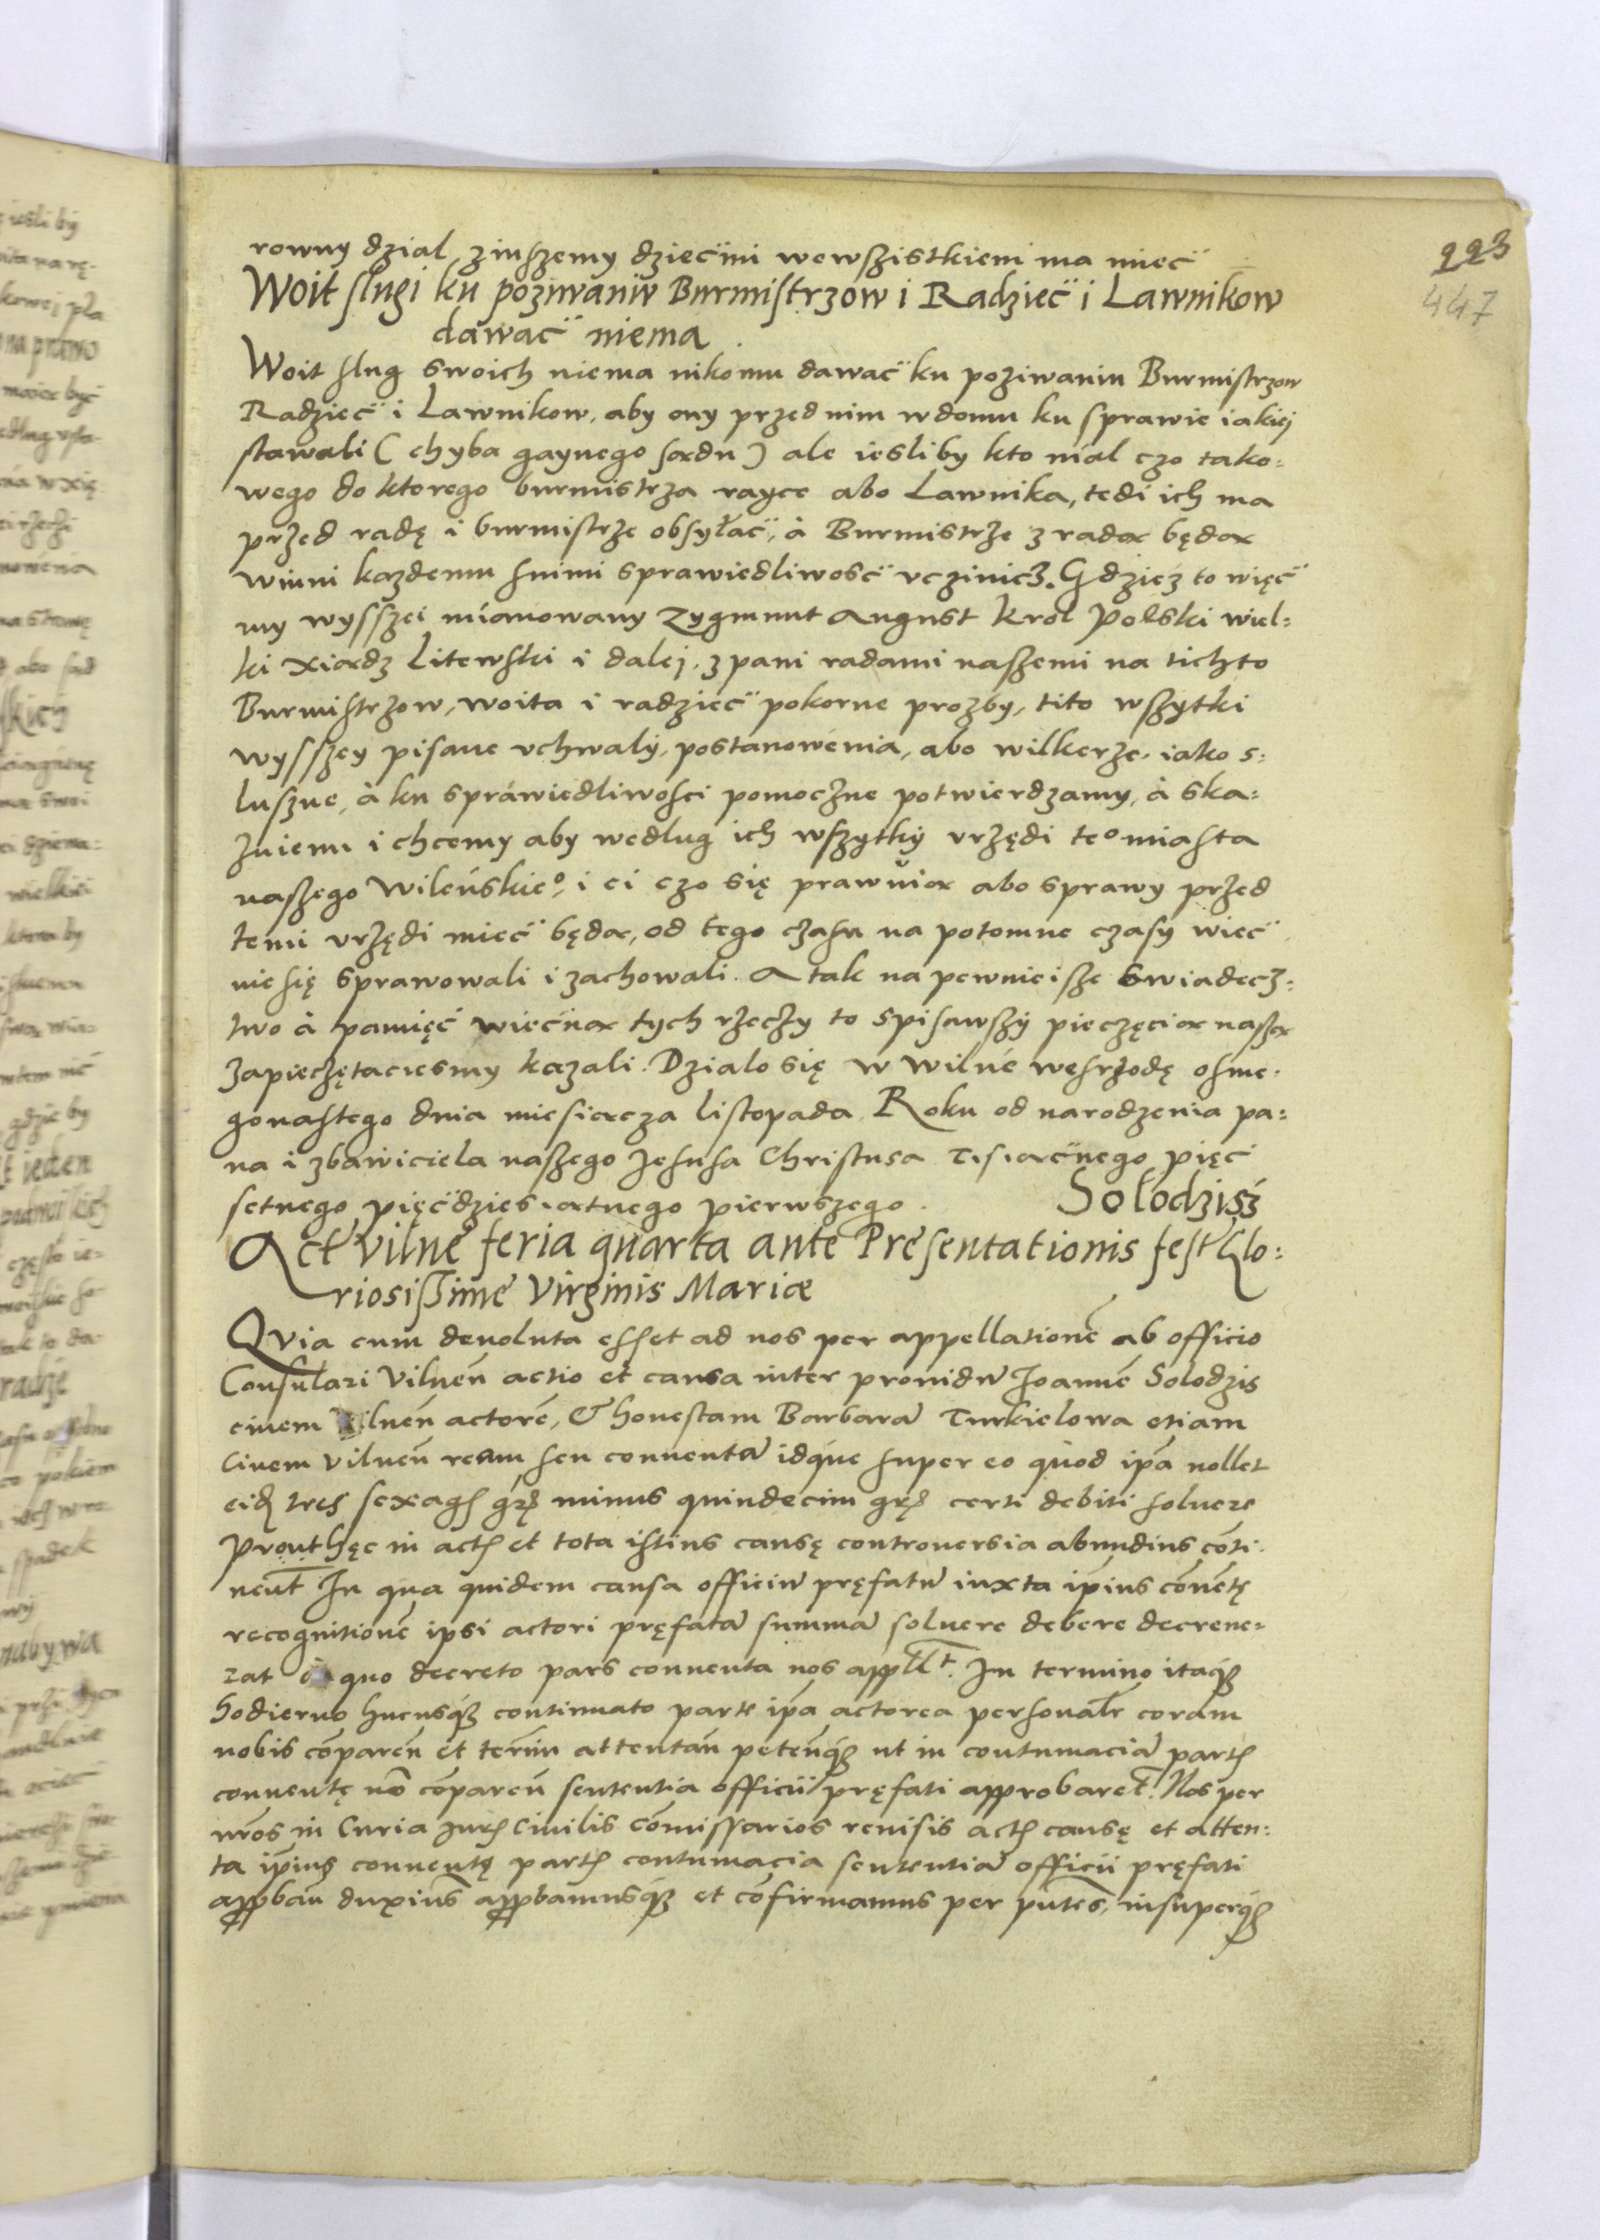 223
447
rowny dzial z inszemy dziećmi wewszistkiem ma mieć
Woit slugi ku pozuvaniu Burmistrzow i Radzieć i Lawnikow
dawać niema.
Woit slug swoich niema nikomu dawać ku poziwaniu Burmistrzow
Radzieć i Lawnikow, aby ony przed nim w domu ku sprawie iakiej
stawali ( chyba gaynego sądu ) ale iesliby kto miał czo tako=
wego do ktorego burmistrza rayce abo Lawnika, tedi ich ma
przed radę i burmistrze obsyłać, à Burmistrze z radą będą
winni kazdemu snimi sprawiedliwość vczinicz. Gdziez to więć
my wysszei mianowany Zygmunt August Krol Polski wiel=
ki xiądz Litewski i dalej. z pani radami naszemi na tichto
Burmistrzow, woita i radzieć pokorne prozby, tito wszytki
wysszey pisane vchwały, postanowenia, abo wilkerze. iako s=
luszne, à ku spráwiedliwosci pomoczne potwierdzamy, à ska=
zuiemi i chcemy aby wedlug ich wszytky vrzędi te° miasta
naszego Wileńskie°, i ci czo się prawuią abo sprawy przed
temi vrzędi mieć będą, od tego czasu na potomne czasy wieć
nie się sprawowali i zachowali. A tak na pewnieisze swiadecz=
two à pamięć wiećną tych rzeczy to spisawszy pieczęcią naszą
zapieczętaciesmy kazali. Dzialo się w Wilné wesrzodę osme.
gonastego dnia miesiącza listopada. Roku od narodzenia pa=
na i zbawiciela naszego Jesusa Christusa Tisiącnego pięć
setnego pięćdziesiątnego pierwszego. Solodzisz
Act Vilne feria quarta ante Presentationis fest Glo=
riosissime Virginis Mariæ
Qvia cum deuoluta esset ad nos per appellationē ab officio
Consulari Vilneñ actio et causa inter prouidū Joannē Solodzis
ciuem Vilneñ actorē, & honestam Barbarā Turkielowa etiam
Ciuem Vilneñ ream seu conuentā idque super eo quod ipā nollet
eid tres sexags gr̄s minus quindecim gr̄s certi debiti soluere
Prout hęc in actis et tota istius causę controuersia abundius cōti.
nent̄ In qua quidem causa officiū pręfatū iuxta ipīus cōuētę
recognitionē ipsi actori pręfatā summā soluere debere decreue=
rat à quo decreto pars conuenta nos appllt̄. In termino itaqȝ
hodierno hucusqȝ continuato parte ipā actorea personalr̄ coram
nobis cōpareñ et termī attentañ petenqȝ ut in contumaciā partis
conuentę nō cōpareñ sententia officii pręfati approbaret̄. Nos per
nr̄os in Curia Juris Ciuilis cōmissarios reuisis actis causę et atten=
ta ipīus conuentę partis contumacia sententiā officii pręfati
approbañ duximꝰ approbamusqȝ et cōfirmamus per pn̄tes, insuperqȝ